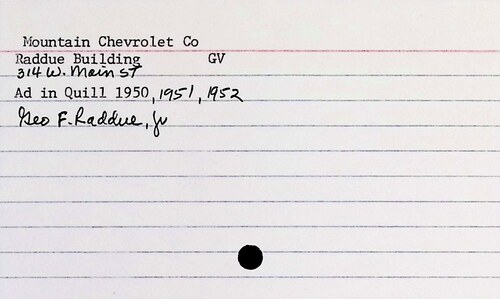 Mountain Chevrolet Co
Raddue Building GV
314 W. Main ST
Ad in Quill 1950, 1951, 1952
Geo F. Raddue, Jr